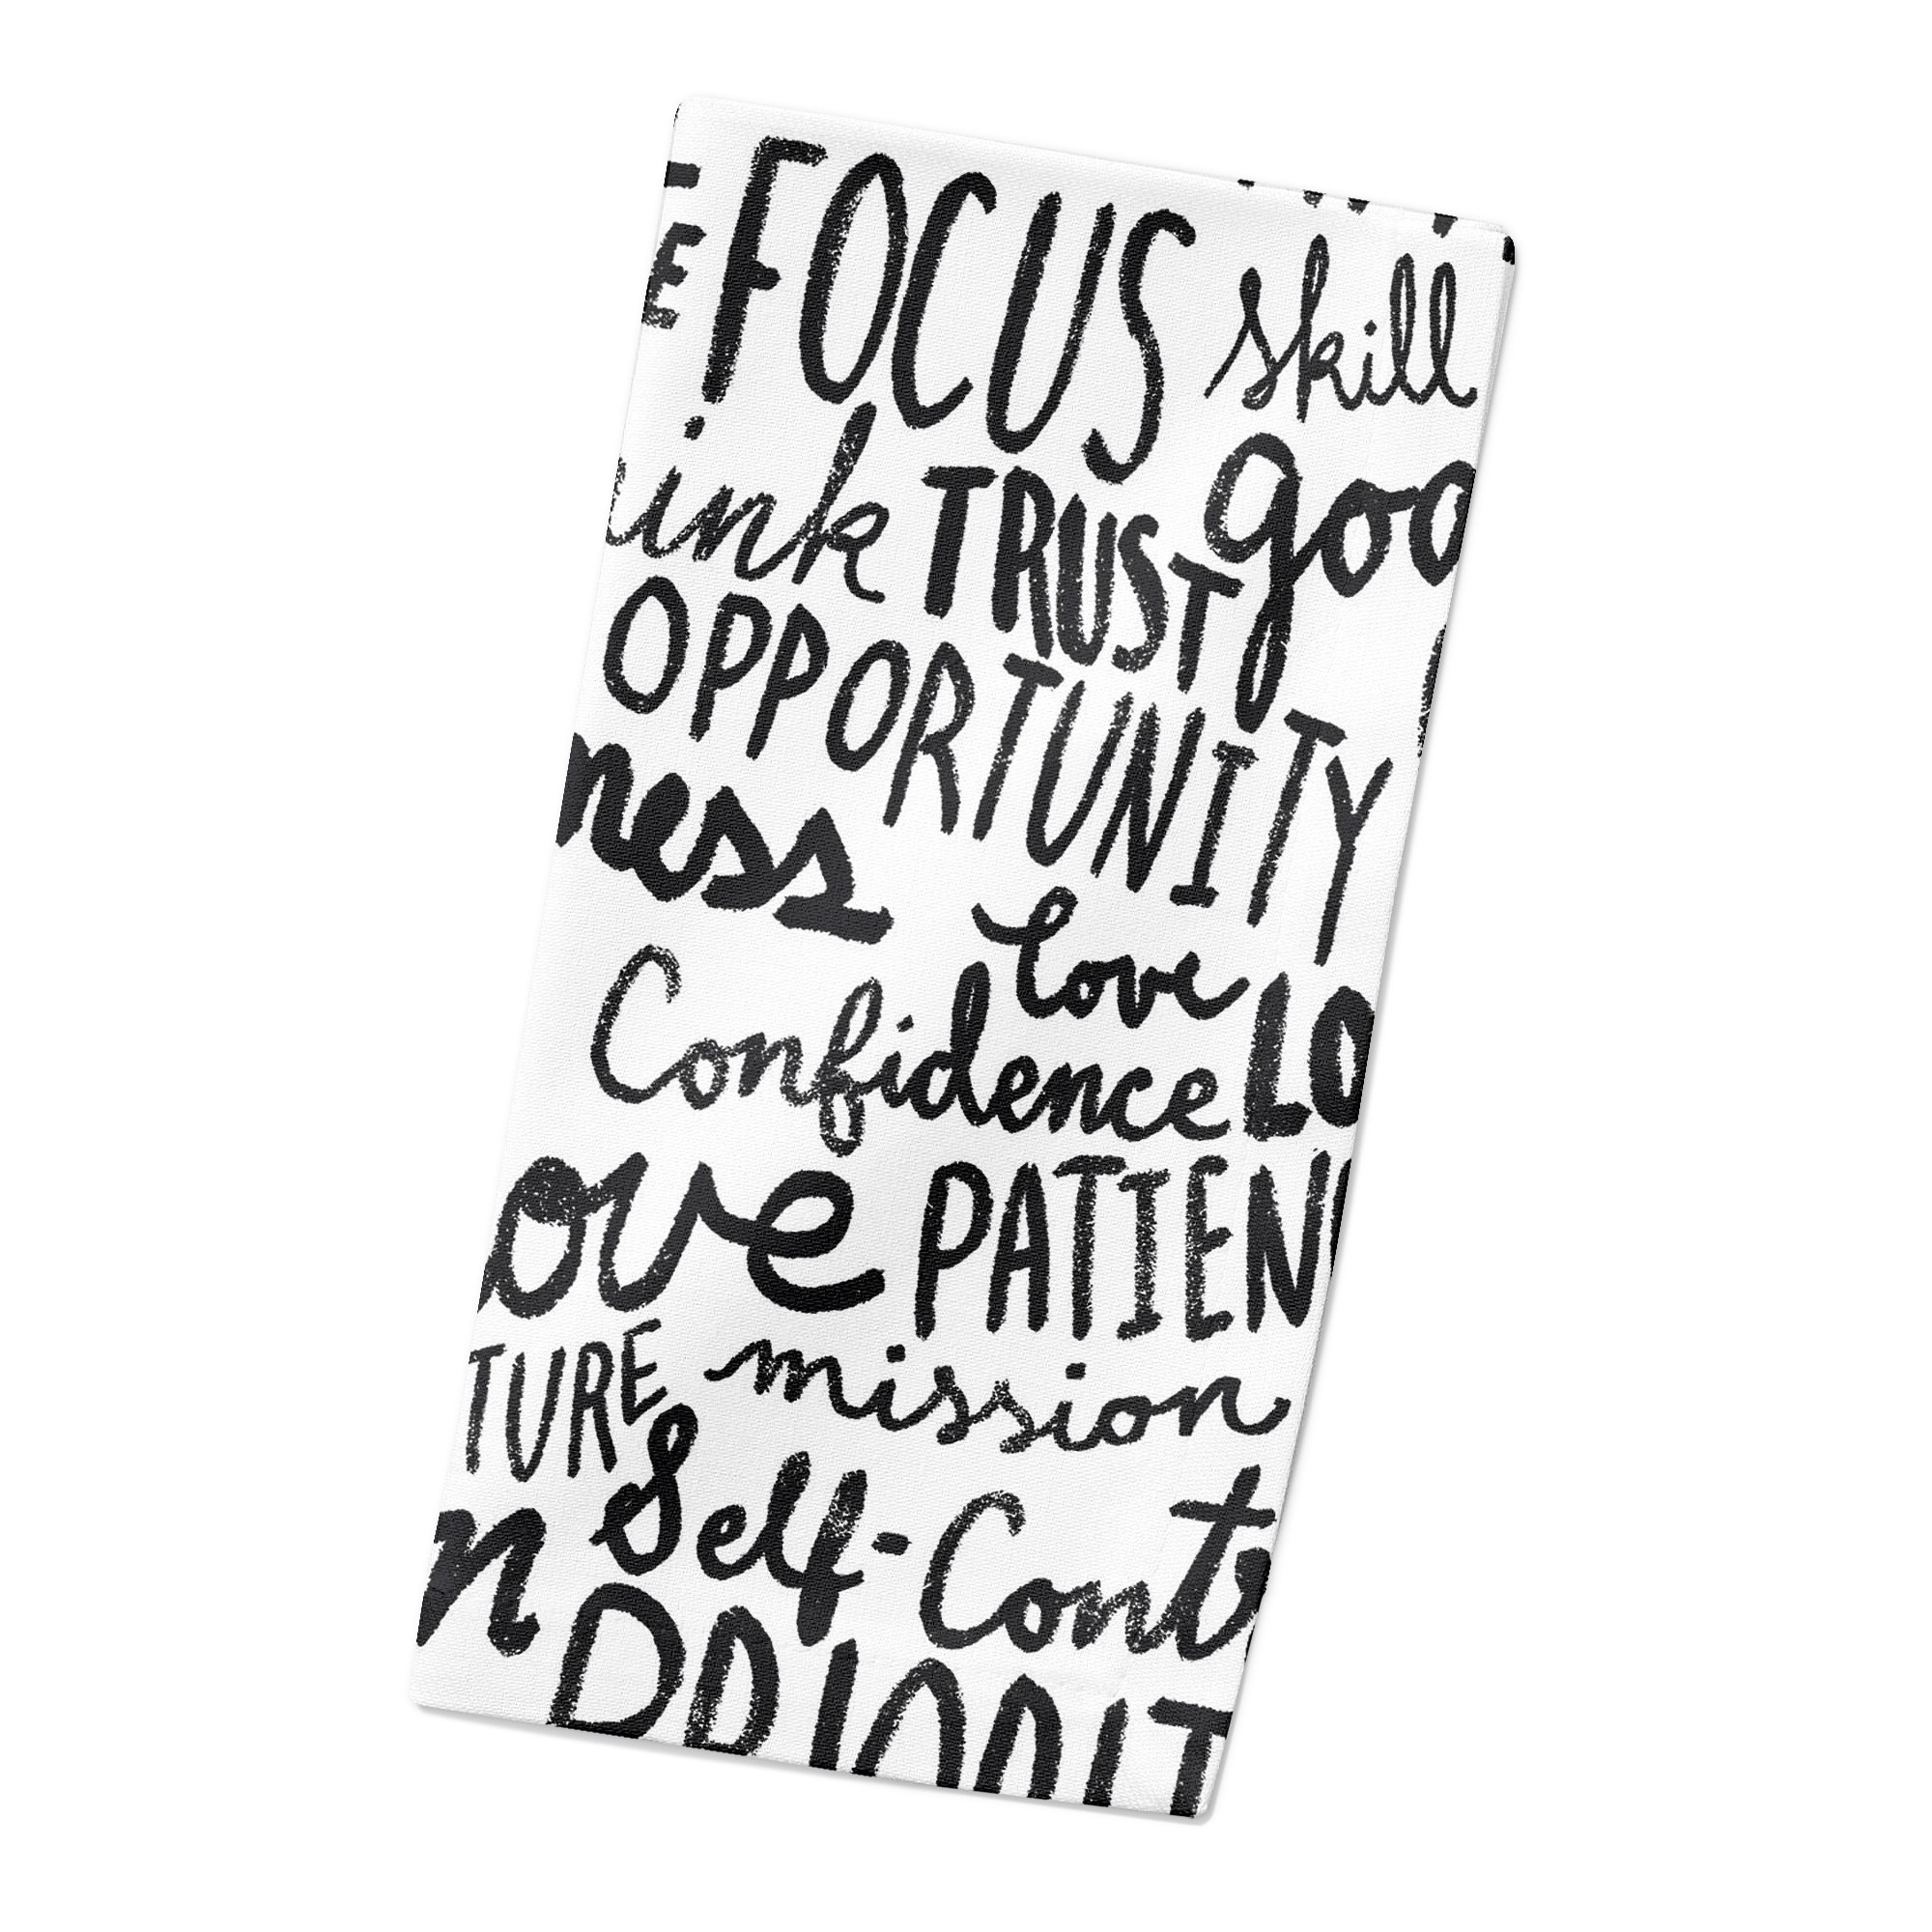 E FOCUS skill
ink TRUST goo
OPPORTUNITY
ness love
Confidence LO
ove PATIEN
TURE mission
n Self-Cont
PRIORIT